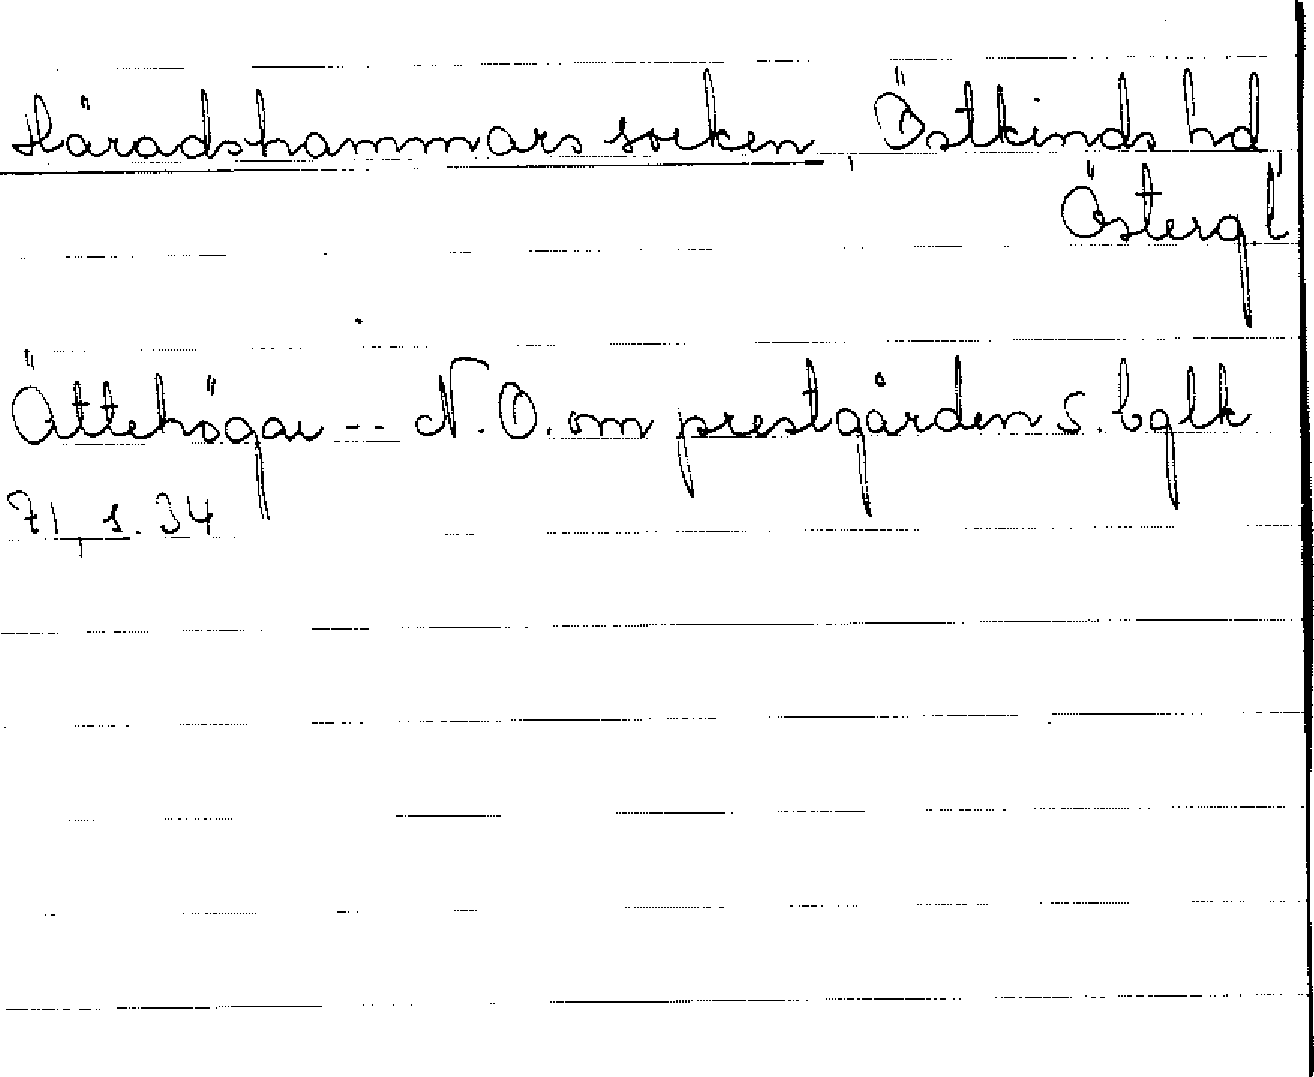 Häradshammars socken, Östkinds hd
Östergl
Ättehögar -- N.O. om prestgården S. bglk
71, s. 34